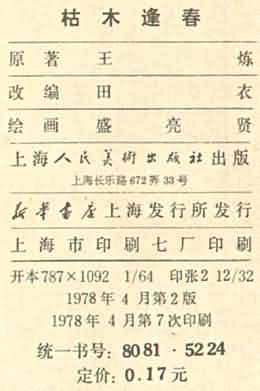 枯木逢春
原著 王炼
改编 田衣
绘画 盛亮贤
上海人民美術出版社出版
上海长乐路672弄33号
新华書店上海发行所发行
上海市印刷七厂印刷
开本787×1092 1/64 印张2 12/32
1978年4月第2版
1978年4月第7次印刷
统一书号：8081·5224
定价：0.17元